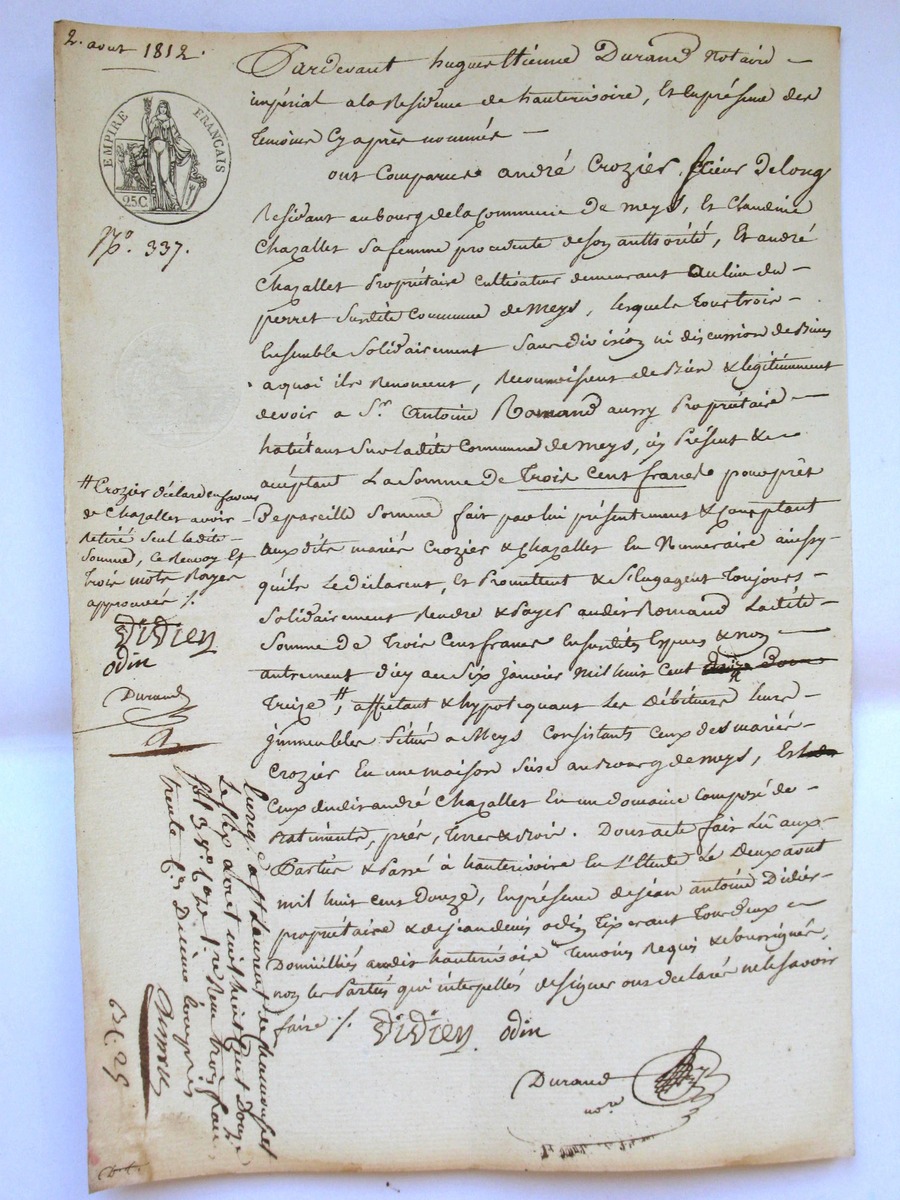 2. aout 1812.
EMPIRE FRANÇAIS
25C
No. 337.
Pardevant hugues Etienne Durand Notaire
impérial a la Residence de hauterivoire, Et En présence des
Temoins Cy après nommés
ont Comparus andré Crozier, Sieur Delong
Residant au bourg de la Commune De Meys, Et Claudine
Chazallet Sa femme procedente de Son authorité, Et andré
Chazallet Propriétaire Cultivateur demeurant au lieu du
perret Susdite Commune de Meys, lesquels Tous trois
Ensemble Solidairement Sans division ni discussion de Biens
a quoi ils Renoncent, Reconnoissent de Bien & legitimement
devoir a Sr. Antoine Romand aussy Propriétaire
habitant Sur la dite Commune de Meys, icy Présent &
acéptant La Somme De Trois Cent francs pour prêt
De pareille Somme fait par lui présentement & Comptant
aux dits mariés Crozier & Chazallet En Numeraire ainssy
qu'ils Le déclarent, Et Promettent & S'Engagent Toujours
Solidairement Rendre & Payer audit Romand Ladite
Somme De Trois Cent francs En Susdites Espèces & non
autrement d'icy au Six janvier Mil huit Cent
Treize #, affectant & hypotéquant Les Débiteurs leurs
jmmeubles Situés a Meys Consistants Ceux des mariés
Crozier En une maison Sise au Bourg de Meys, Et
Ceux dudit andré Chazallet En un domaine Composé de
Batiments, prés, Terres & Bois. Dont acte fait Lû aux
Parties & Passé à hauterivoire En l'Etude Le Deux aout
mil huit Cent Douze, En présence de jean antoine Didier
propriétaire & de jean denis odin Tixerant Tous deux
Domiciliés audit hauterivoire Temoins Requis & Soussignés,
non les Parties qui interpellés de Signer ont déclaré ne le Savoir
faire /.
DiDiEy odin
Durand
nore
# Crozier déclare en faveur
de Chazallet avoir
Retiré Seul ladite
Somme, Ce Renvoy Et
Trois mots Rayés
approuvés /.
DiDiEy
odin
Durand
Enreg. a St Laurent de Chamousset
Le Six aout mil huit Cent Douze
trois francs
trente Cs Dixième Compris